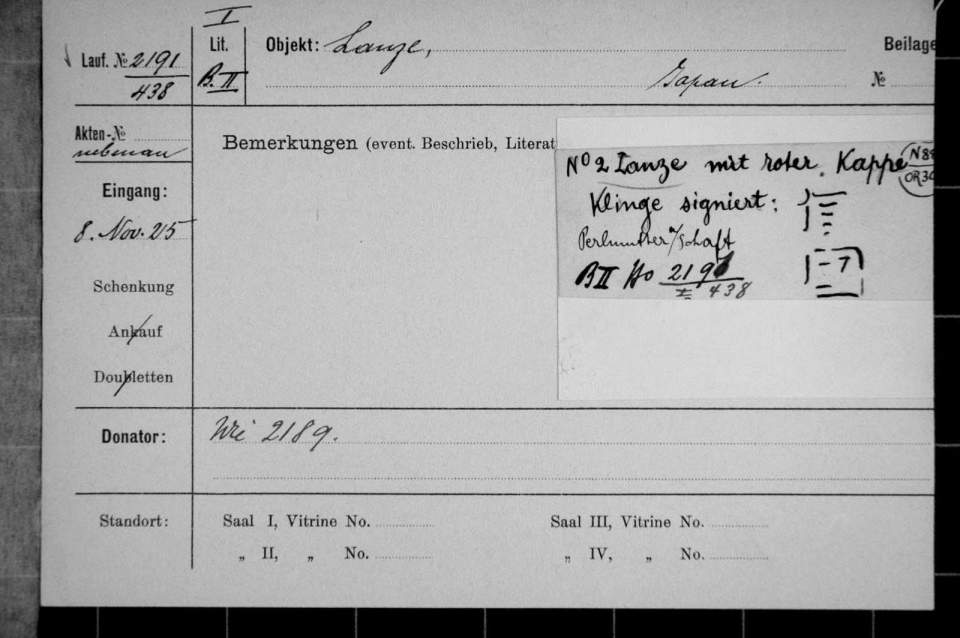 I
Lauf. № 2191
438
Lit.
B. II
Objekt: Lanze,
Japan.
Beilage
№
Akten-№
nebenan
Bemerkungen (event. Beschrieb, Literat
Eingang:
8. Nov. 25
Schenkung
Ankauf
Doubletten
No 2 Lanze mit roter Kappe
Klinge signiert:
Perlmutter/Schaft
B II No 2191
I 438
Donator:
Wie 2189.
Standort:
Saal I, Vitrine No.
Saal III, Vitrine No.
„ II, „ No.
„ IV, „ No.